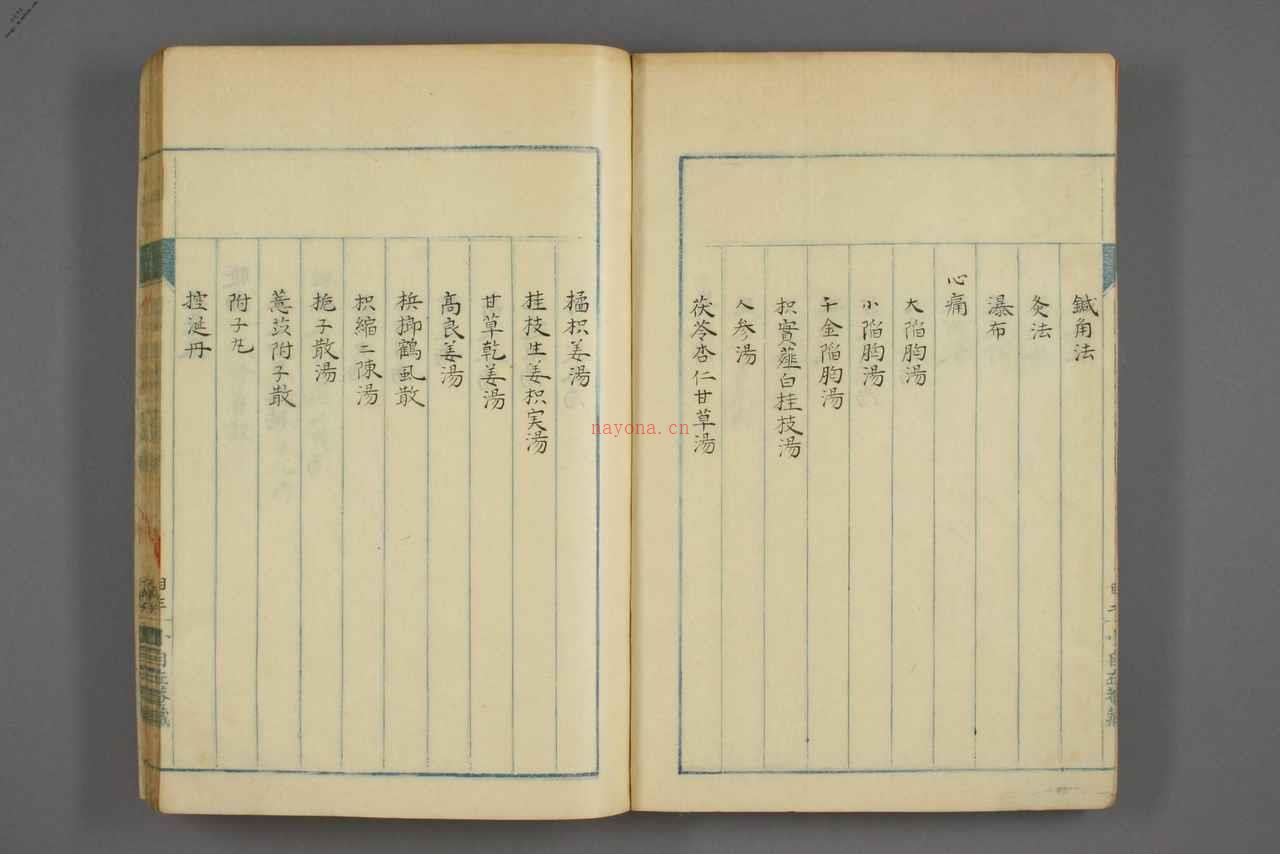 鍼角法
灸法
瀑布
心痛
大陥胸湯
小陥胸湯
千金陥胸湯
枳實薤白桂枝湯
人参湯
茯苓杏仁甘草湯
橘枳姜湯
桂枝生姜枳実湯
甘草乾姜湯
髙良姜湯
梹榔鶴虱散
枳縮二陳湯
梔子散湯
薏苡附子散
附子丸
控涎丹
nayona.cn